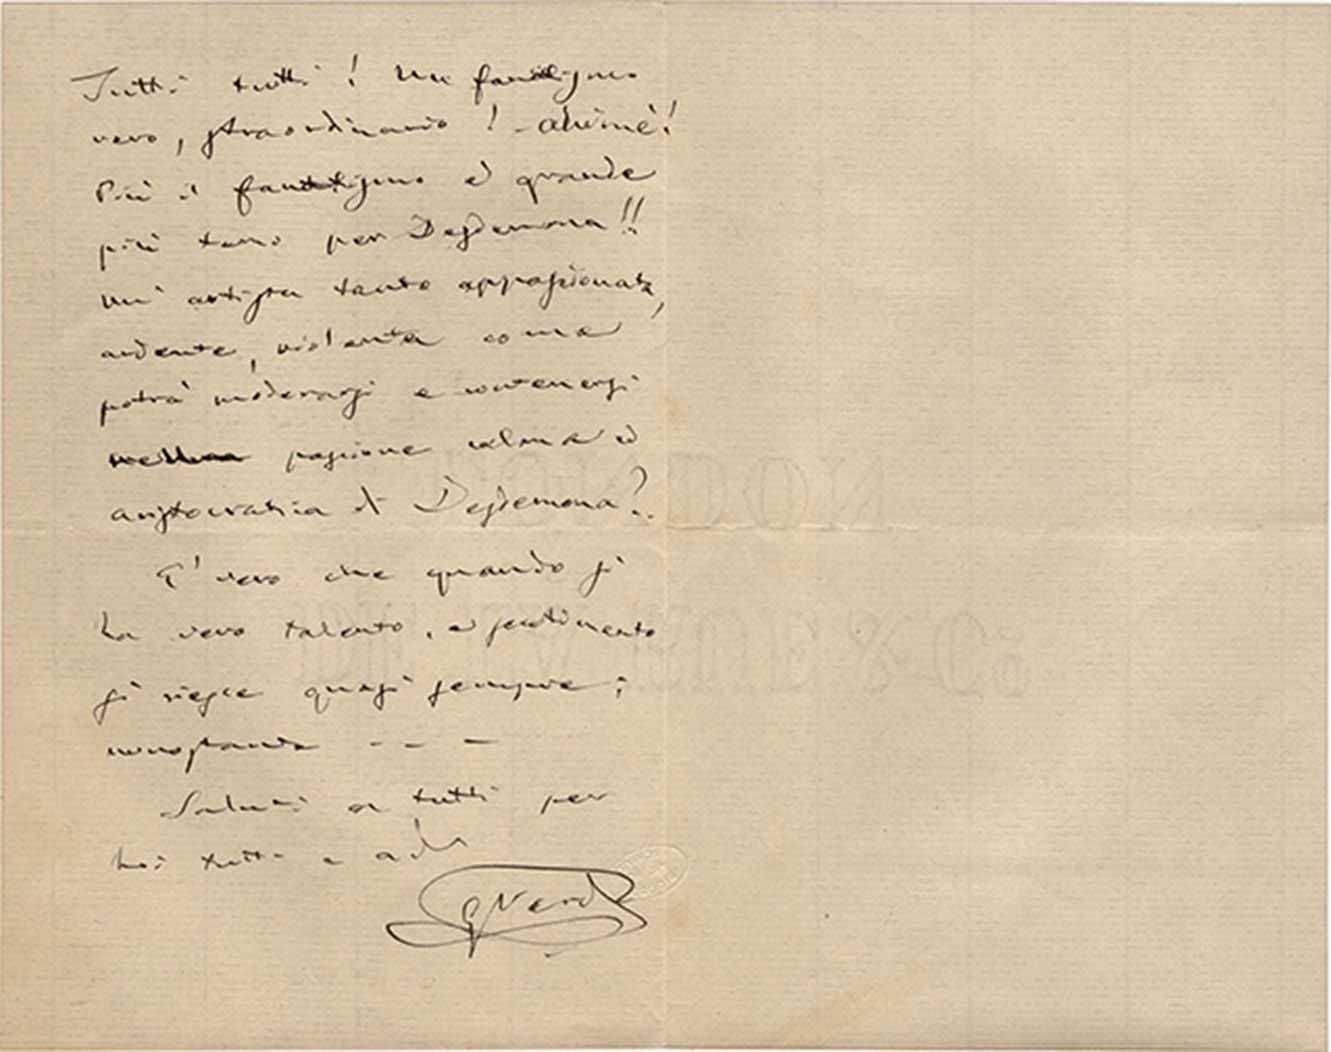 Tutti tutti! Un fanatismo
vero, straordinario! – ahimè!
Più il fanatismo è grande
più temo per Desdemona!!
Un' artista tanto appassionata,
ardente, violenta come
potrà moderarsi e contenersi
passione calma ed
aristocratica di Desdemona?..
E' vero che quando si
ha vero talento, e sentimento
si riesce quasi sempre;
nonostante - - -
Saluti a tutti per
noi tutti e add
G Verdi
LONDON
& C⁰